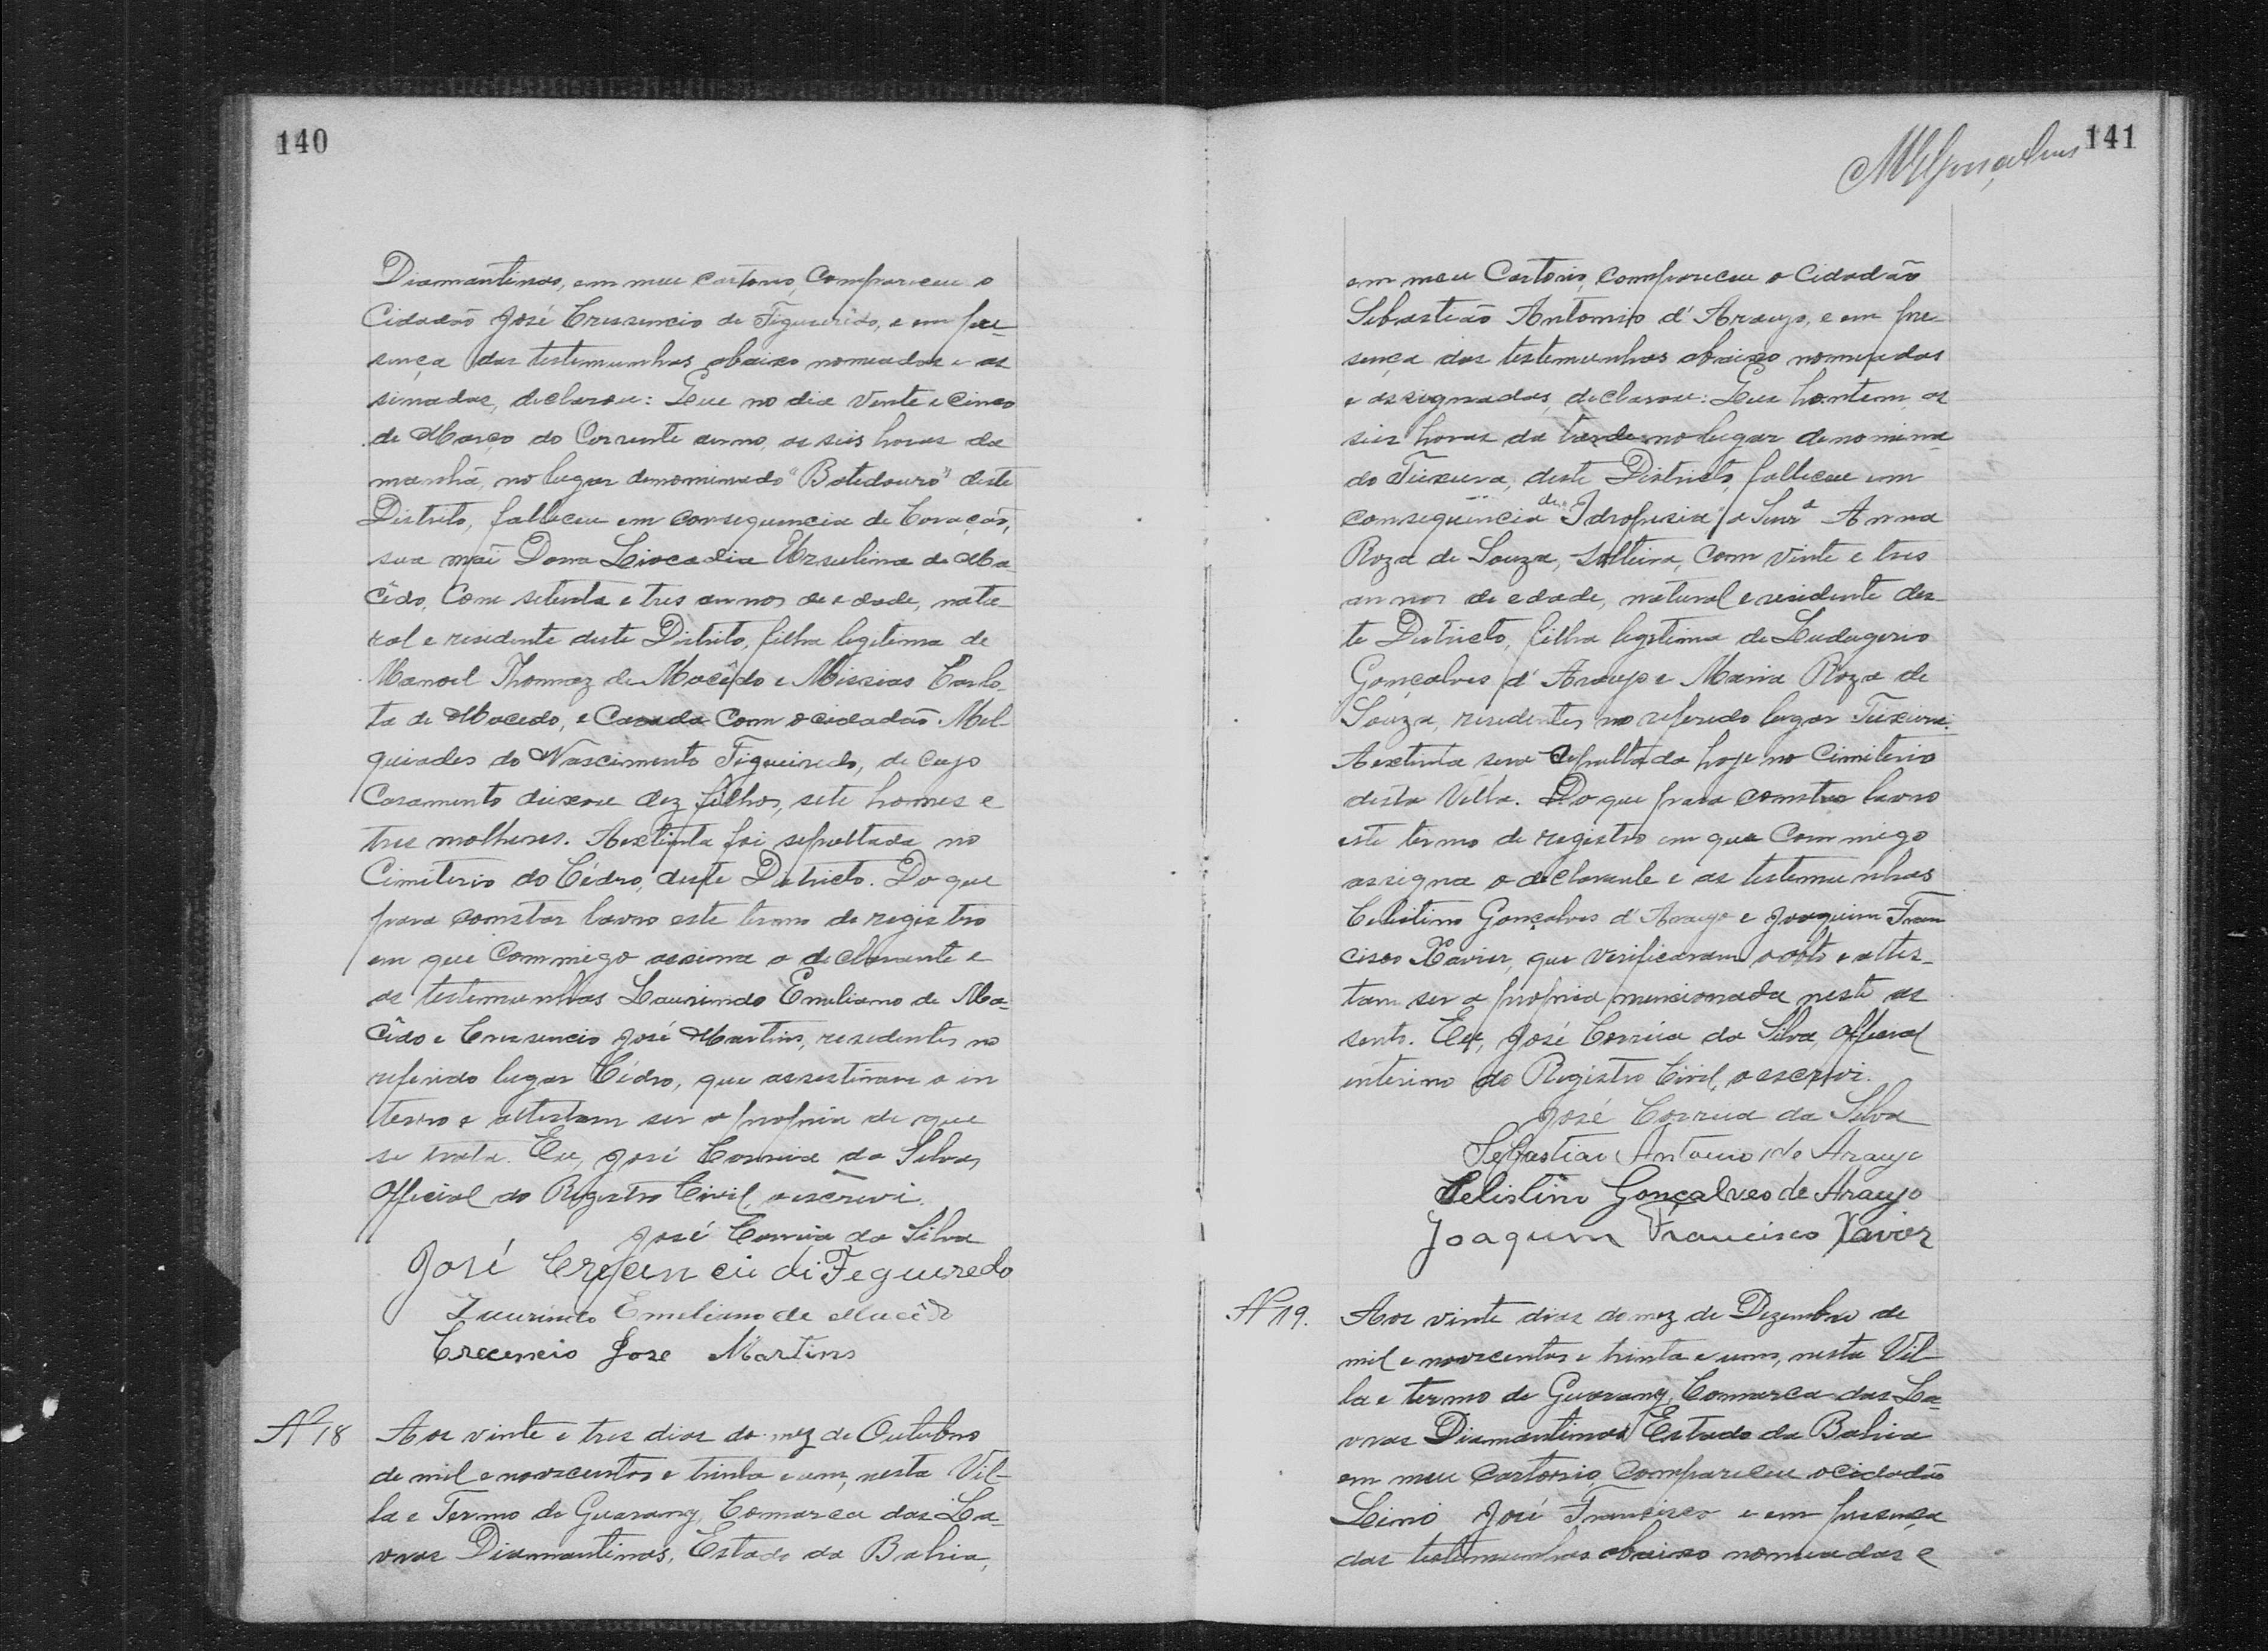 140
Diamantinas, em meu cartorio, compareceu o
Cidadão José Cressencio de Figueirêdo, e em pre-
sença das testemunhas abaixo nomeadas e as
sinadas, declarou: Que no dia vente e cinco
de Março do Corrente anno, as seis horas da
manhã, no lugar denominado "Batedouro" deste
Distrito, falleceu em consequencia de Coração,
sua mãi Dona Liocadia Ursulina de Ma-
cêdo, Com setenta e tres annos de edade, natu-
ral e residente deste Distrito, filha legitima de
Manoel Thomaz de Macêdo e Missias Carlo-
ta de Macedo, e Casada Com o cidadão Mel-
quiades do Nascimento Figueiredo, de cujo
Casamento deixou dez filhos, sete homes e
tres molheres. A extinta foi sepultada no
Cimiterio do Cédro, deste Districto. Do que
para constar lavro este termo de registro
em que Commigo assina o declarante e
as testemunhas Laurindo Emiliano de Ma-
cêdo e Cressencio José Martins, resedentes no
referido lugar Cédro, que assestiram o in
terro e attestam ser a propria de que
se trata. Eu, José Correia da Silva,
Official do Registro Civil, o escrevi.
José Correia da Silva
José Cresencio di Fegueredo
Laurindo Emeliano de Macêdo
Crecencio Jose Martins
Nº 18
Aos vinte e tres dias do mez de Outubro
de mil e novecentos e trinta e um, nesta Vil-
la e Termo de Guarany, Comarca das La-
vras Diamantinas, Estado da Bahia,
141
em meu Cartorio, compareceu o Cidadão
Sebastião Antonio d'Araujo, e em pre
sença das testemunhas abaixo nomeadas
e assignadas, declarou: Que hontem, as
seis horas da tarde no lugar denomina-
do Teixeira, deste Districto, falleceu em
consequencia de Idropesia a Senrª Anna
Roza de Souza, solteira, com vinte e tres
annos de edade, natural e residente des-
te Districto, filha legitima de Ludugerio
Gonçalves d'Araujo e Maria Roza de
Souza, residentes no referedo lugar Teixeira.
A extinta sera sepultada hoje no Cimiterio
desta Villa. Do que para constar lavro
este termo de registro em que Commigo
assigna o declarante e as testemunhas
Celistino Gonçalves d'Araujo e Joaquim Fran
cisco Xavier, que verificaram o obto e attes-
tam ser a propria mencionada neste as
sento. Eu, José Correia da Silva, Official
interino do Registro Civil, o escrevi.
José Correia da Silva
Sebastiao Antonio de Araujo
Celistino Gonçalves de Araujo
Joaquim Francisco Xavier
Nº 19.
Aos vinte dias do mez de Dezembro de
mil e novecentos e trinta e um, nesta Vil-
la e termo de Guarany, Comarca das La-
vras Diamantinas Estado da Bahia
em meu cartorio, compareceu o cidadão
Lino José Francisco e em presença
das testemunhas abaixo nomeadas e